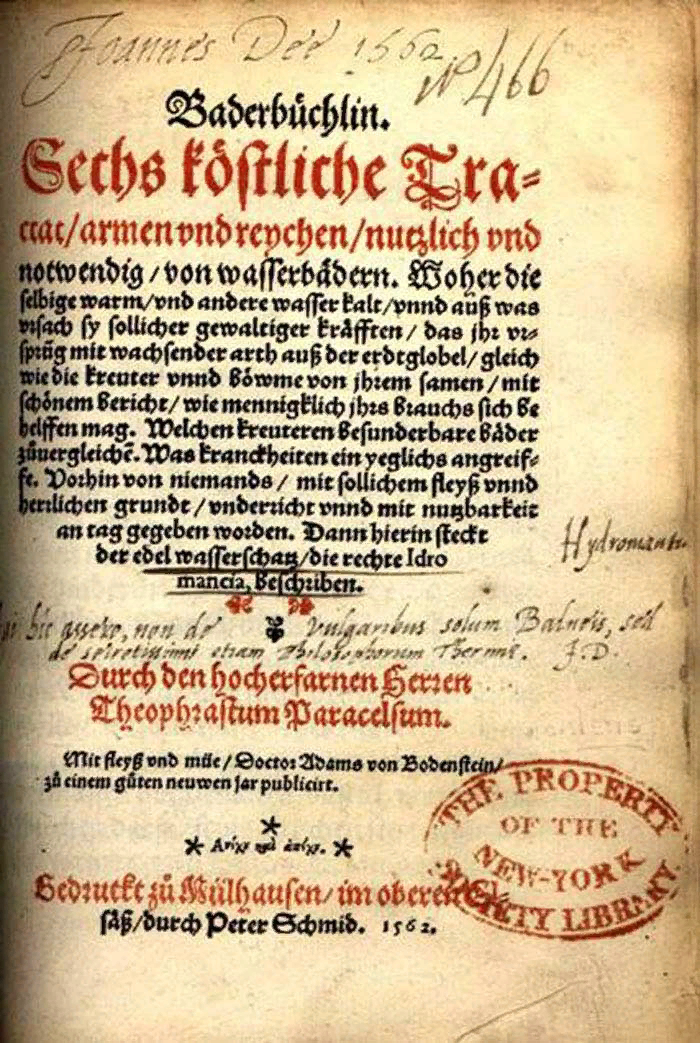 Joannes Dee 1562
Nº 466
Baderbüchlin.
Sechs köstliche Tra-
ctat/armen vnd reychen/nutzlich vnd
notwendig/von wasserbädern. Woher die
selbige warm/vnd andere wasser kalt/vnnd auß was
vrsach sy sollicher gewaltiger kräfften/das jhr vr-
sprüg mit wachsender arth auß der erdtglobel/gleich
wie die kreuter vnnd böwme von jhrem samen/mit
schönem bericht/wie mennigklich jhrs brauchs sich be
helffen mag. Welchen kreuteren besunderbare bäder
zůuergleichē. Was kranckheiten ein yeglichs angreif-
fe. Vorhin von niemands/mit sollichem fleyß vnnd
herrlichen grundt/vnderricht vnnd mit nutzbarkeit
an tag gegeben worden. Dann hierin steckt
der edel wasserschatz/die rechte Idro
mancia, beschriben.
Hydromant
hic quæro, non de vulgaribus solum Balneis, sed
de secretissimis etiam Philosophorum Thermis. J.D.
Durch den hocherfarnen Herren
Theophrastum Paracelsum.
Mit fleyß vnd müe/Doctor Adams von Bodenstein/
zů einem gůten neuwen jar publicirt.
THE PROPERTY
OF THE
NEW-YORK
SOCIETY LIBRARY
Gedruckt zů Mülhausen/im oberen El-
säß/durch Peter Schmid. 1562.